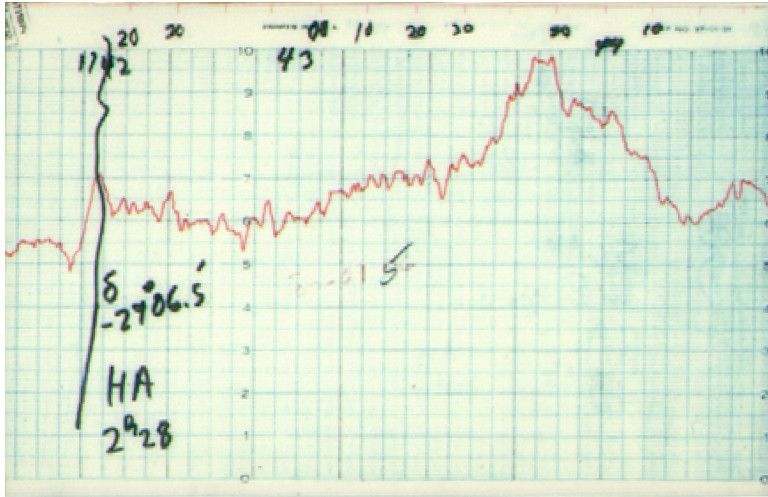 20 30 00 10 20 30 50 10
1742 43
10
9
8
7
6
5
4
3
2
1
0
δ
-27°06.5'
HA
2h28
5